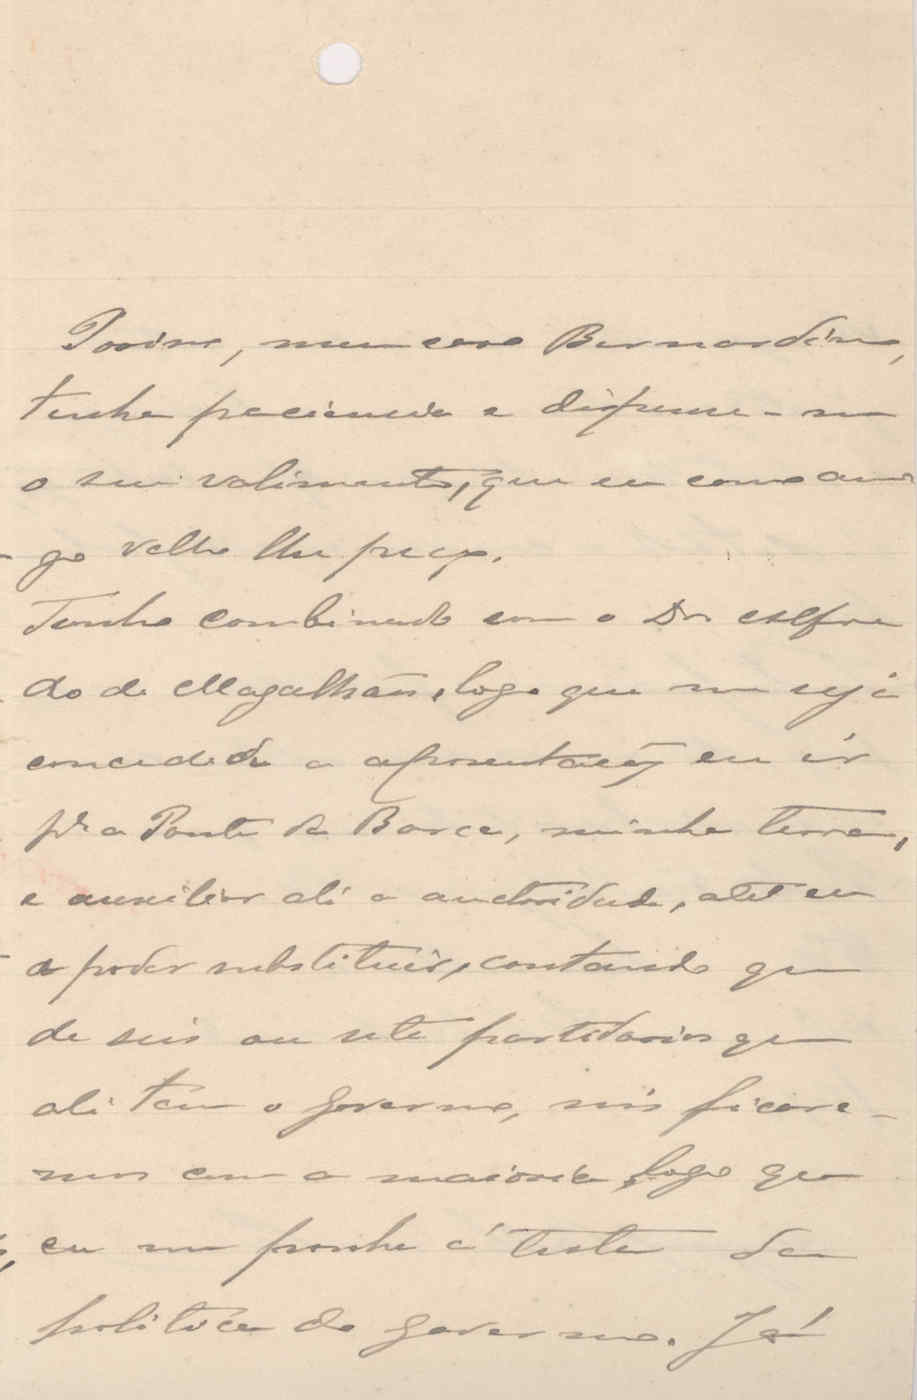 Porisso, meu caro Bernardino,
tenha paciencia e dispense-me
o seu valimento, que eu como ami-
go velho lhe peço.
Tenho combinado com o Dr. Alfre
do de Magalhães, logo que me seja
concedida a aposentação eu ir
pra Ponte da Barca, minha terra,
e auxiliar ali a auctoridade, até eu
a poder substituir, contando que
de seis ou sete partidarios que
ali tem o governo, nós ficare-
mos com a maioria, logo que
eu me ponha á testa da
politica do governo. Já